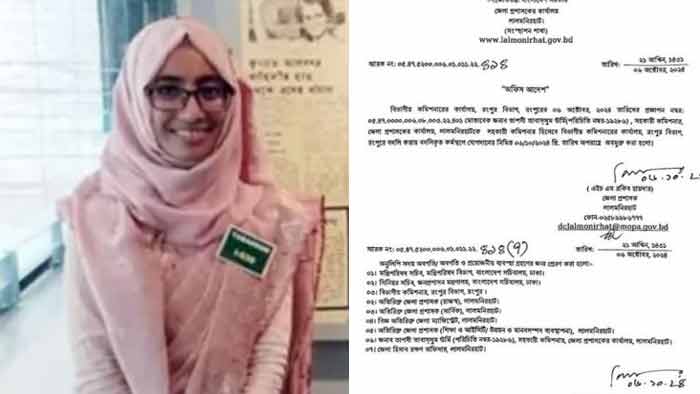 জেলা প্রশাসকের কার্যালয়
লালমনিরহাট।
(সংস্থাপন শাখা)
www.lalmonirhat.gov.bd
স্মারক নং: ০৫.৪৭.৫২০০.০০৬.০১.০১১.২২.৪২৪
তারিখ: ২১ আশ্বিন, ১৪৩১
০৬ অক্টোবর, ২০২৪
"অফিস আদেশ"
বিভাগীয় কমিশনারের কার্যালয়, রংপুর বিভাগ, রংপুরের ০৬ অক্টোবর, ২০২৪ তারিখের প্রজ্ঞাপন নম্বর:
মোতাবেক জনাব তাপসী তাবাসসুম ঊর্মি(পরিচিতি নম্বর-১৯২৮৬), সহকারী কমিশনার,
জেলা প্রশাসকের কার্যালয়, লালমনিরহাটকে সহকারী কমিশনার হিসেবে বিভাগীয় কমিশনারের কার্যালয়, রংপুর বিভাগ,
রংপুরে বদলি করায় বদলিকৃত কর্মস্থলে যোগদানের নিমিত্ত ০৬/১০/২০২৪ খ্রি. তারিখ অপরাহ্ণে অবমুক্ত করা হলো।
০৬.১০.২৪
(এইচ এম রকিব হায়দার)
জেলা প্রশাসক
লালমনিরহাট
dclalmonirhat@mopa.gov.bd
স্মারক নং: ০৫.৪৭.৫২০০.০০৬.০১.০১১.২২.৪২৪(৭)
তারিখ: ২১ আশ্বিন, ১৪৩১
০৬ অক্টোবর, ২০২৪
অনুলিপি সদয় অবগতি/ অবগতি ও প্রয়োজনীয় ব্যবস্থা গ্রহণের জন্য প্রেরণ করা হলো:-
০১। মন্ত্রিপরিষদ সচিব, মন্ত্রিপরিষদ বিভাগ, বাংলাদেশ সচিবালয়, ঢাকা।
০২। সিনিয়র সচিব, জনপ্রশাসন মন্ত্রণালয়, বাংলাদেশ সচিবালয়, ঢাকা।
০৩। বিভাগীয় কমিশনার, রংপুর বিভাগ, রংপুর।
০৪। অতিরিক্ত জেলা প্রশাসক (রাজস্ব), লালমনিরহাট।
০৩। অতিরিক্ত জেলা প্রশাসক (সার্বিক), লালমনিরহাট।
০৪। বিজ্ঞ অতিরিক্ত জেলা ম্যাজিস্ট্রেট, লালমনিরহাট।
০৫। অতিরিক্ত জেলা প্রশাসক (শিক্ষা ও আইসিটি/ উন্নয়ন ও মানবসম্পদ ব্যবস্থাপনা), লালমনিরহাট।
০৬। জনাব তাপসী তাবাসসুম ঊর্মি (পরিচিতি নম্বর-১৯২৮৬), সহকারী কমিশনার, জেলা প্রশাসকের কার্যালয়, লালমনিরহাট।
০৭। জেলা হিসাব রক্ষণ অফিসার, লালমনিরহাট।
০৬.১০.২৪